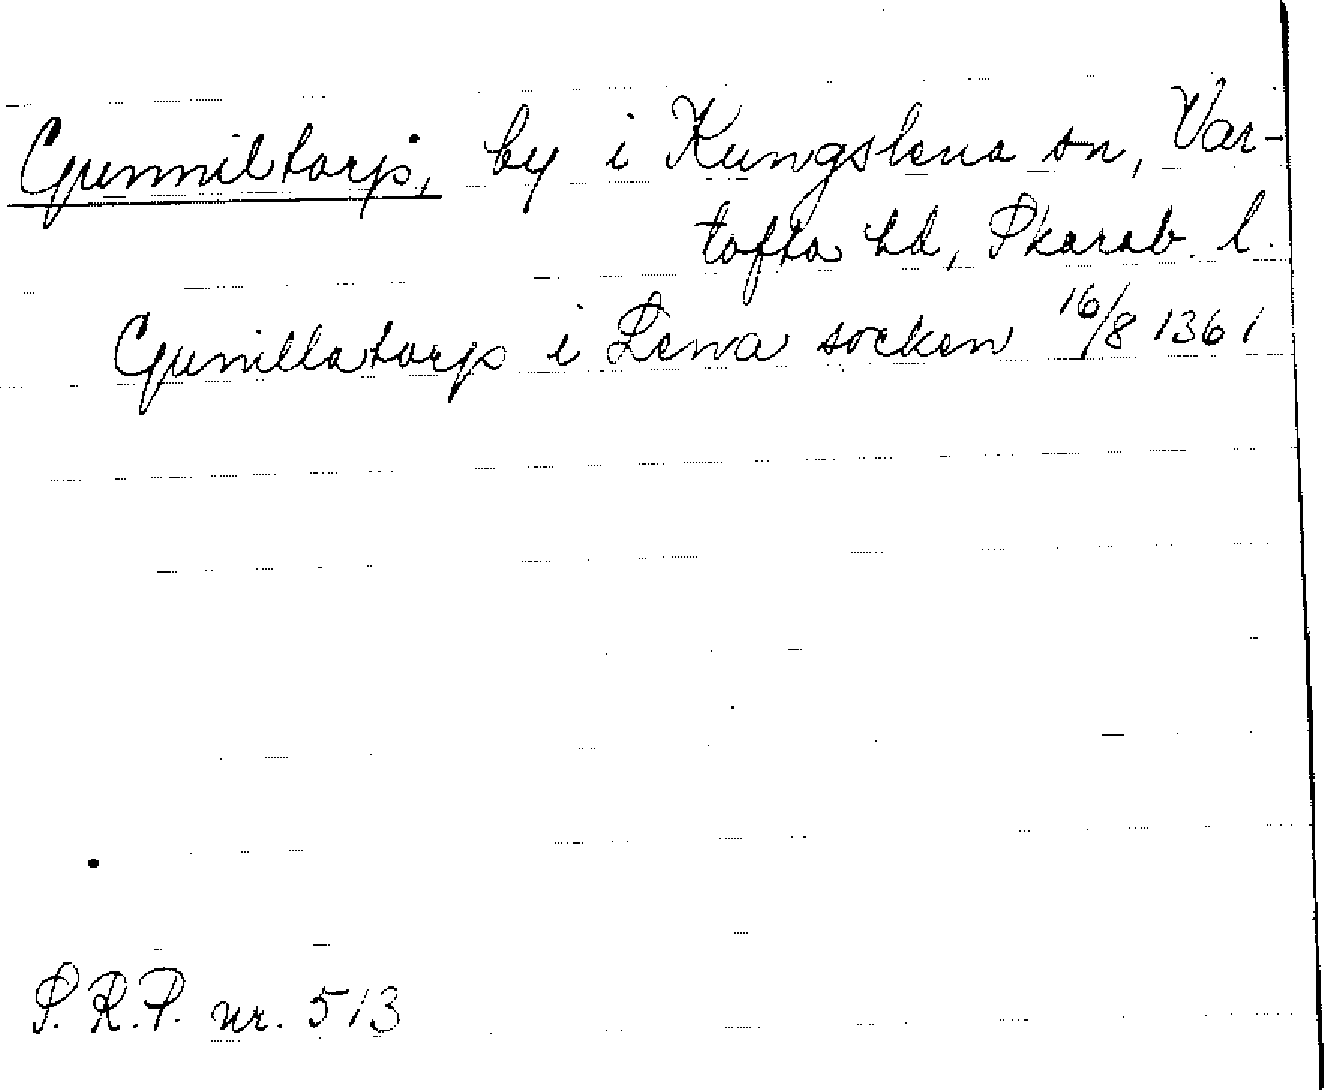 Gunniltorp, by i Kungslena sn, Var-
tofta hd, Skarab. l.
Gunillatorp i Lena socken 16/8 1361
S.R.P. nr. 513